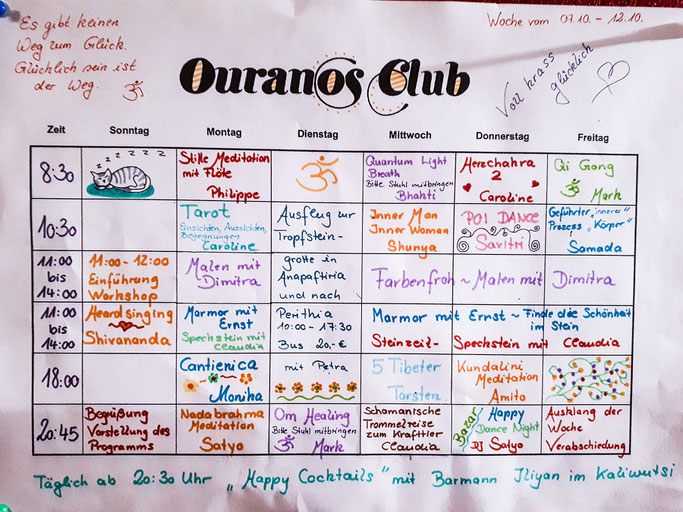 Es gibt keinen
Weg zum Glück.
Glücklich sein ist
der Weg. ॐ
Woche vom 07.10. - 12.10.
Ouranos Club
Voll krass
glücklich
Zeit Sonntag Montag Dienstag Mittwoch Donnerstag Freitag
8:30
z z z z z z
Stille Meditation
mit Flöte
Philippe
ॐ
Quantum Light
Breath
Bitte Stuhl mitbringen
Bhakti
Herzchakra
2
Caroline
Qi Gong
ॐ Mark
10:30
Tarot
Einsichten, Aussichten,
Begegnungen
Caroline
Ausfeug zur
Tropfstein-
Inner Man
Inner Woman
Shunya
POI DANCE
Savitri
Geführter "innerer"
Prozess "Körper"
Samada
11:00
bis
14:00
11:00 - 12:00
Einführung
Workshop
Malen mit
Dimitra
grotte in
Anapaftiria
und nach
Farbenfroh ~ Malen mit Dimitra
11:00
bis
14:00
Heardsinging
Shivananda
Marmor mit
Ernst
Speckstein mit
Claudia
Perithia
10:00 - 17:30
Bus 20,- €
Marmor mit Ernst ~ Finde die Schönheit
im Stein
Steinzeit- Speckstein mit Claudia
18:00
Cantienica
Monika
mit Petra
5 Tibeter
Torsten
Kundalini
Meditation
Amito
20:45
Begrüßung
Vorstellung des
Programms
Nadabrahma
Meditation
Satyo
Om Healing
Bitte Stuhl mitbringen
ॐ Mark
Schamanische
Trommelreise
zum Krafttier
Claudia
Bazar
Happy
Dance Night
DJ Satyo
Ausklang der
Woche
Verabschiedung
Täglich ab 20:30 Uhr „Happy Cocktails" mit Barmann Iliyan im Kaliwutsi